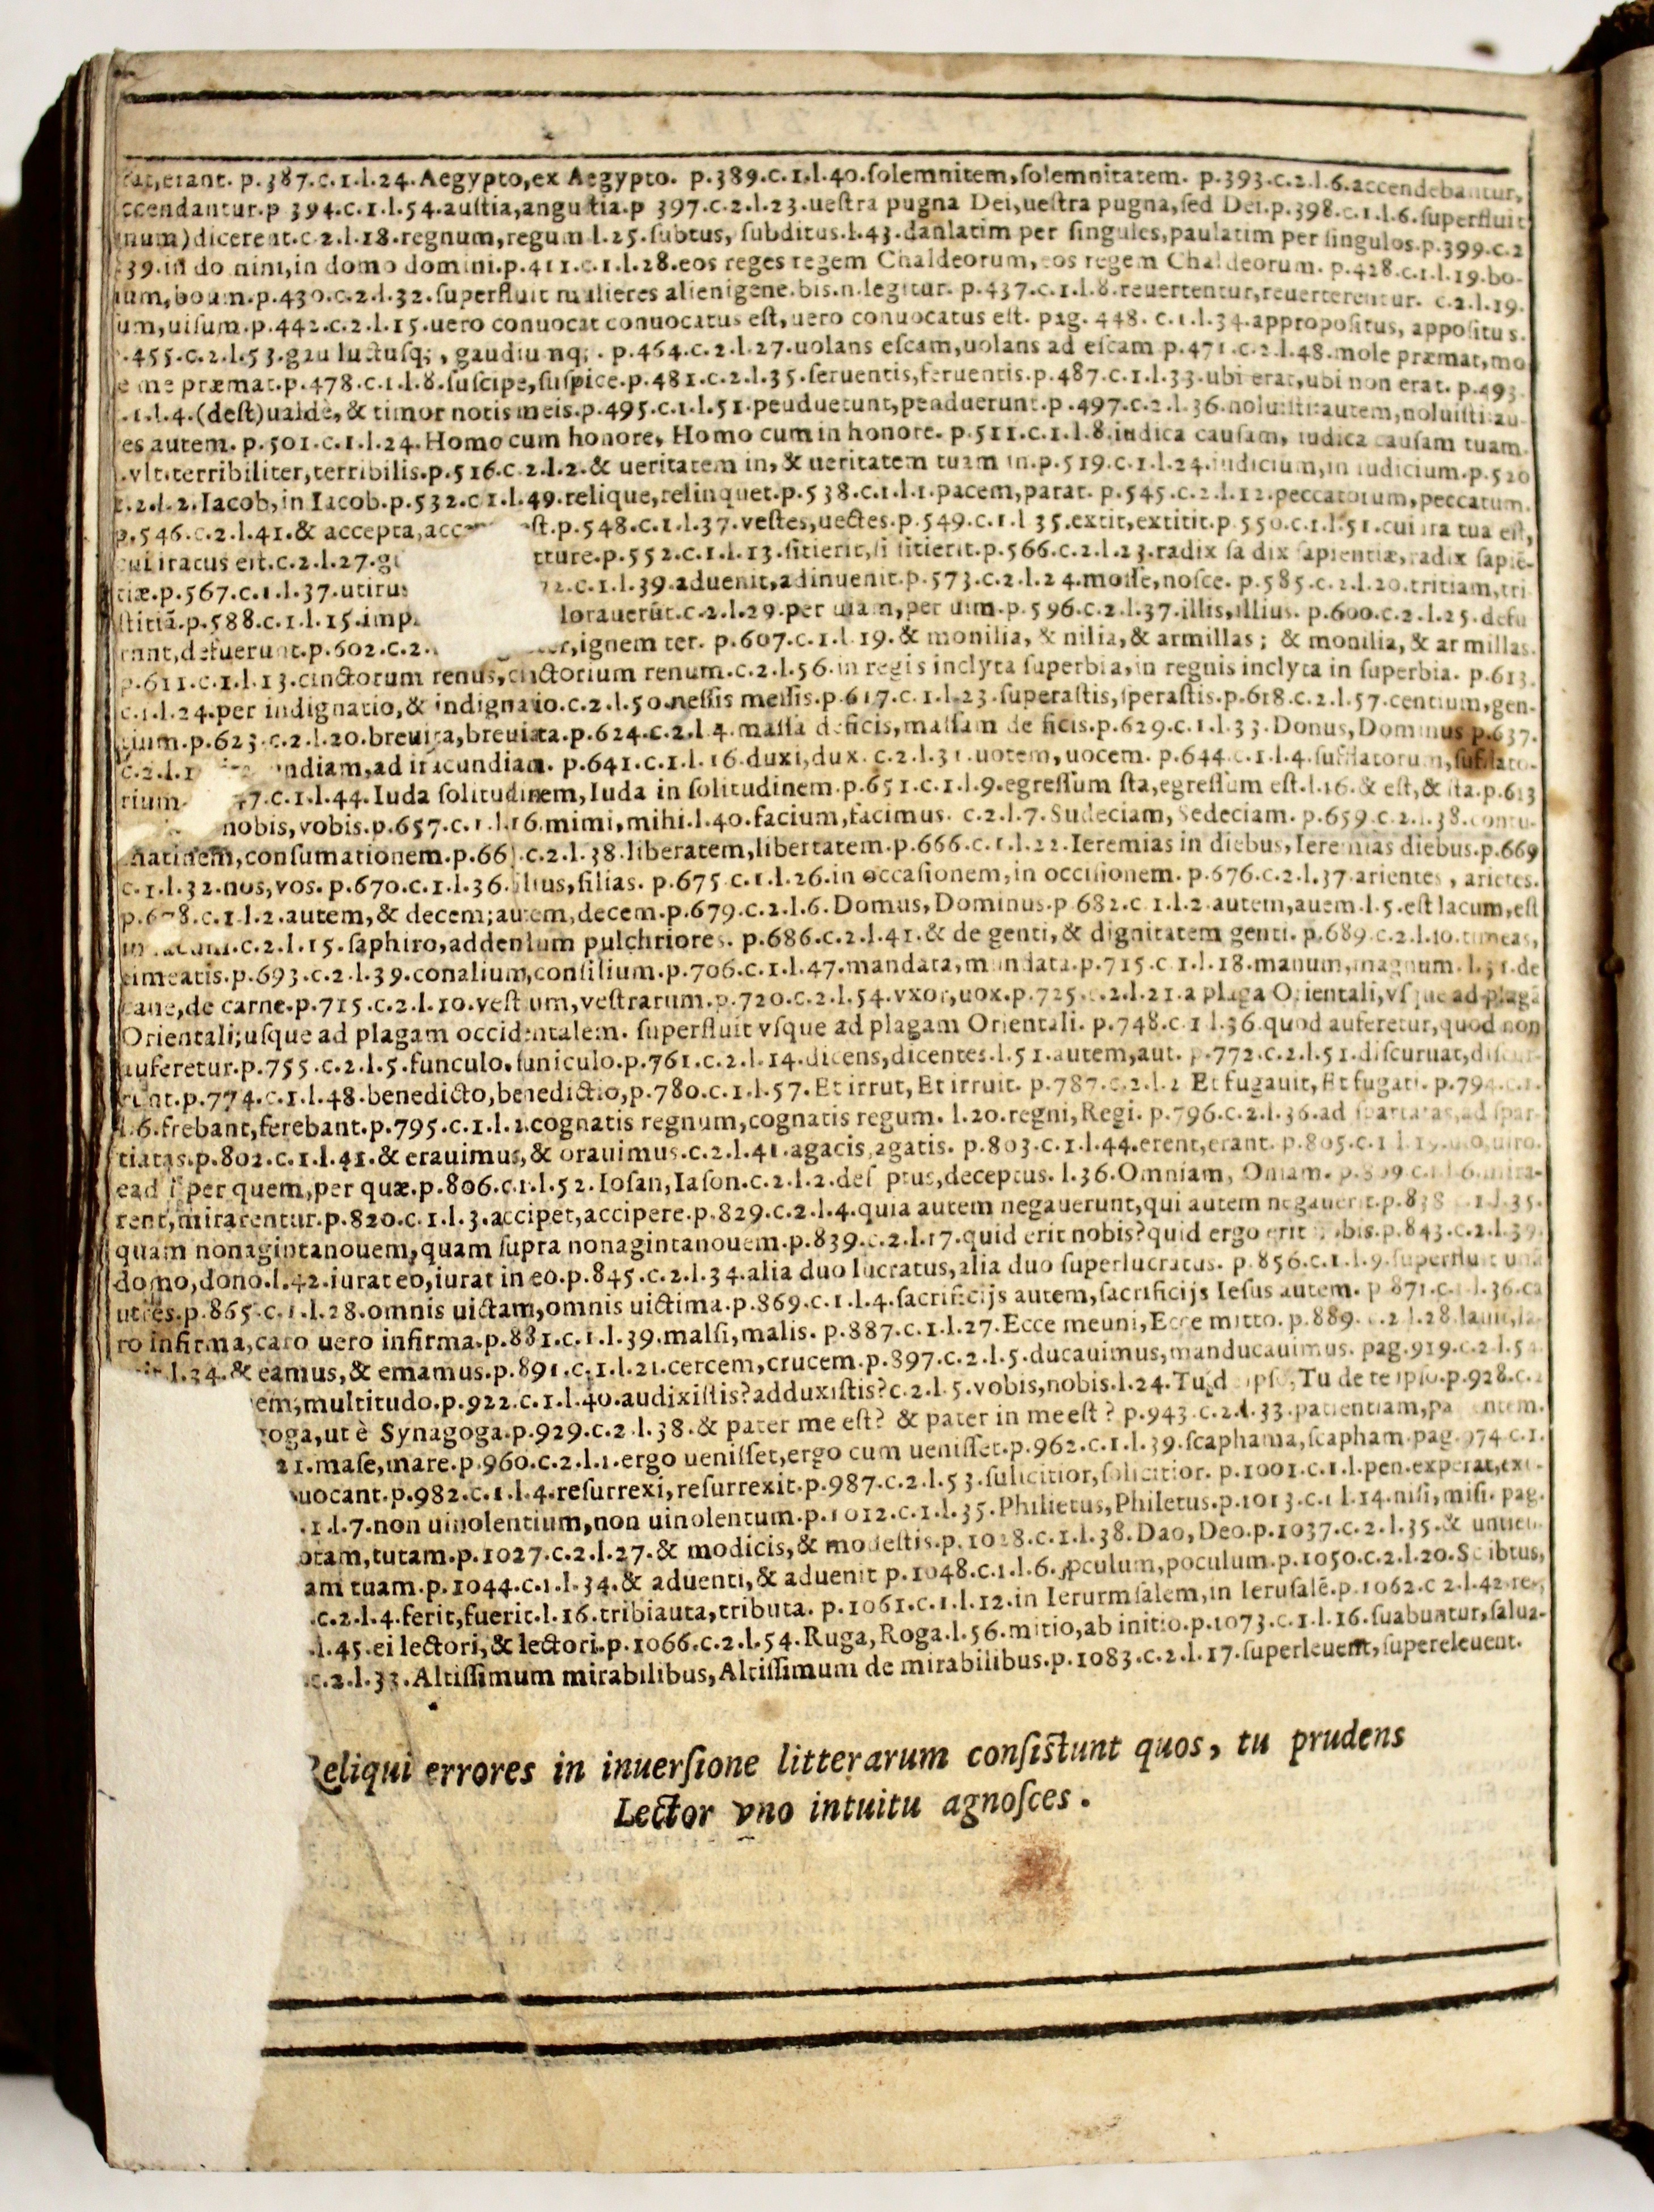 erant. p.387.c.1.l.24.Aegypto,ex Aegypto. p.389.c.1.l.40.ſolemnitem,ſolemnitatem. p.393.c.2.l.6.accendebantur,
ccendantur.p 394.c.1.l.54.auſtia,anguſtia.p 397.c.2.l.23.ueſtra pugna Dei,ueſtra pugna,ſed Dei.p.398.c.1.l.6.ſuperfluit
num)dicerent.c 2.l.18.regnum,regum l.25.ſubtus, ſubditus.l.43.danlatim per ſingules,paulatim per ſingulos.p.399.c.2
39.in domini,in domo domini.p.411.c.1.l.28.eos reges regem Chaldeorum,eos regem Chaldeorum. p.428.c.1.l.19.bo-
ium,boum.p.430.c.2.l.32.ſuperfluit mulieres alienigene.bis.n.legitur. p.437.c.1.l.8.reuertentur,reuerterentur. c.2.l.19.
um,uiſum.p.442.c.2.l.15.uero conuocat conuocatus eſt,uero conuocatus eſt. pag. 448. c.1.l.34.appropoſitus, appoſitus.
.455.c.2.l.53.gau luctuſq; , gaudiumq; . p.464.c.2.l.27.uolans eſcam,uolans ad eſcam p.471.c.2.l.48.mole præmat,mo
e me præmat.p.478.c.1.l.8.ſuſcipe,ſuſpice.p.481.c.2.l.35.ſeruentis,feruentis.p.487.c.1.l.33.ubi erat,ubi non erat. p.493.
.1.l.4.(deſt)ualde,& timor notis meis.p.495.c.1.l.51.peuduetunt,penduerunt.p.497.c.2.l.36.noluiſti:autem,noluiſti:au-
es autem. p.501.c.1.l.24.Homo cum honore, Homo cum in honore. p.511.c.1.l.8.iudica cauſam, iudica cauſam tuam.
.vlt.terribiliter,terribilis.p.516.c.2.l.2.& ueritatem in,& ueritatem tuam in.p.519.c.1.l.24.iudicium,in iudicium.p.520
c.2.l.2.Iacob,in Iacob.p.532.c 1.l.49.relique,relinquet.p.538.c.1.l.1.pacem,parat. p.545.c.2.l.12.peccatorum,peccatum.
p.546.c.2.l.41.& accepta, eſt.p.548.c.1.l.37.veſtes,uectes.p.549.c.1.l 35.extit,extitit.p.550.c.1.l.51.cui ira tua eſt,
cui iratus eſt.c.2.l.27. tture.p.552.c.1.l.13.ſitierit,ſi ſitierit.p.566.c.2.l.23.radix ſa dix ſapientiæ,radix ſapiē-
tiæ.p.567.c.1.l.37. 72.c.1.l.39.aduenit,adinuenit.p.573.c.2.l.24.moſſe,noſce. p.585.c.2.l.20.tritiam,tri
ſtitiā.p.588.c.1.l.15. lorauerūt.c.2.l.29.per uiam,per uim.p.596.c.2.l.37.illis,illius. p.600.c.2.l.25.defu
runt,defuerunt.p.602.c.2. ,ignem ter. p.607.c.1.l.19.& monilia, & nilia,& armillas; & monilia,& armillas.
p.611.c.1.l.13.cinctorum renus,cinctorium renum.c.2.l.56.in regis inclyta ſuperbia,in regnis inclyta in ſuperbia. p.613.
c.1.l.24.per indignatio,& indignatio.c.2.l.50.neſſis meſſis.p.617.c.1.l.23.ſuperaſtis,ſperaſtis.p.618.c.2.l.57.centium,gen-
tium.p.623.c.2.l.20.breuita,breuiata.p.624.c.2.l 4.maſſa deficis,maſſam de ficis.p.629.c.1.l.33.Donus,Dominus p.637.
c.2.l.1 ndiam,ad iracundiam. p.641.c.1.l.16.duxi,dux. c.2.l.31.uotem,uocem. p.644.c.1.l.4.ſufflatorum,ſufflato-
rium. 47.c.1.l.44.Iuda ſolitudinem,Iuda in ſolitudinem.p.651.c.1.l.9.egreſſum ſta,egreſſum eſt.l.16.& eſt,& ita.p.613
nobis,vobis.p.657.c.1.l.16.mimi,mihi.l.40.facium,facimus. c.2.l.7.Sudeciam,Sedeciam. p.659.c.2.l.38.conſu-
matinem,conſumationem.p.66 .c.2.l.38.liberatem,libertatem.p.666.c.1.l.22.Ieremias in diebus,Ieremias diebus.p.669
c.1.l.32.nos,vos. p.670.c.1.l.36.filius,filias. p.675 c.1.l.26.in occaſionem,in occiſionem. p.676.c.2.l.37.arientes , arietes.
p.678.c.1.l.2.autem,& decem;autem,decem.p.679.c.2.l.6.Domus,Dominus.p 682.c.1.l.2.autem,auem.l.5.eſt lacum,eſt
in lacum.c.2.l.15.ſaphiro,addendum pulchriores. p.686.c.2.l.41.& de genti,& dignitatem genti. p.689.c.2.l.10.timeas,
timeatis.p.693.c.2.l.39.conalium,conſilium.p.706.c.1.l.47.mandata,mundata.p.715.c 1.l.18.manum,magnum. l.51.de
cane,de carne.p.715.c.2.l.10.veſtrum,veſtrarum.p.720.c.2.l.54.vxor,uox.p.725.c.2.l.21.a plaga Orientali,vſque ad plagā
Orientali;uſque ad plagam occidentalem. ſuperfluit vſque ad plagam Orientali. p.748.c.1 l.36.quod auferetur,quod non
auferetur.p.755.c.2.l.5.funculo,funiculo.p.761.c.2.l.14.dicens,dicentes.l.51.autem,aut. p.772.c.2.l.51.diſcuruat,diſcur-
runt.p.774.c.1.l.48.benedicto,benedictio,p.780.c.1.l.57.Et irrut,Et irruit. p.787.c.2.l.2 Et fugauit,Et fugati. p.794.c.1.
l.6.frebant,ferebant.p.795.c.1.l.2.cognatis regnum,cognatis regum. l.20.regni,Regi. p.796.c.2.l.36.ad ſpartatas,ad ſpar-
tiatas.p.802.c.1.l.41.& erauimus,& orauimus.c.2.l.41.agacis,agatis. p.803.c.1.l.44.erent,erant. p.805.c.1 l.19.
ead per quem,per quæ.p.806.c.1.l.52.Ioſan,Iaſon.c.2.l.2.deſ ptus,deceptus. l.36.Omniam, Oniam. p.809 c.1.l 6.mira-
rent,mirarentur.p.820.c.1.l.3.accipet,accipere.p.829.c.2.l.4.quia autem negauerunt,qui autem negauerit.p.838 c.1.l.35.
quam nonagintanouem,quam ſupra nonagintanouem.p.839.c.2.l.17.quid erit nobis?quid ergo erit nobis.p.843.c.2.l.39.
domo,dono.l.42.iurat eo,iurat in eo.p.845.c.2.l.34.alia duo lucratus,alia duo ſuperlucratus. p 856.c.1.l.9.ſuperfluit unā
utres.p.865.c.1.l.28.omnis uictam,omnis uictima.p.869.c.1.l.4.ſacrificijs autem,ſacrificijs Ieſus autem. p 871.c.1.l.36.ca
ro infirma,caro uero infirma.p.881.c.1.l.39.malſi,malis. p.887.c.1.l.27.Ecce meuni,Ecce mitto. p.889. c.2 l.28.
l.34.& eamus,& emamus.p.891.c.1.l.21.cercem,crucem.p.897.c.2.l.5.ducauimus,manducauimus. pag.919.c.2.l.5
em,multitudo.p.922.c.1.l.40.audixiſtis?adduxiſtis?c.2.l.5.vobis,nobis.l.24.Tu d ipſo,Tu de te ipſo.p.928.c.2
goga,ut è Synagoga.p.929.c.2.l.38.& pater me eſt? & pater in me eſt ? p.943.c.2.l.33.patientiam,pa entem.
21.maſe,mare.p.960.c.2.l.1.ergo ueniſſet,ergo cum ueniſſet.p.962.c.1.l.39.ſcaphama,ſcapham.pag.974 c.1.
uocant.p.982.c.1.l.4.reſurrexi,reſurrexit.p.987.c.2.l.53.ſulicitior,ſolicitior. p.1001.c.1.l.pen.experat,exi-
.1.l.7.non uinolentium,non uinolentum.p.1012.c.1.l.35.Philietus,Philetus.p.1013.c.1 l.14.niſi,miſi. pag.
otam,tutam.p.1027.c.2.l.27.& modicis,& modeſtis.p.1028.c.1.l.38.Dao,Deo.p.1037.c.2.l.35.&
am tuam.p.1044.c.1.l.34.& aduenti,& aduenit p.1048.c.1.l.6.ꝓculum,poculum.p.1050.c.2.l.20.Scibtus,
.c.2.l.4.ferit,fuerit.l.16.tribiauta,tributa. p.1061.c.1.l.12.in Ierurmſalem,in Ieruſalē.p.1062.c 2.l.42.re-
.l.45.ei lectori,& lectori.p.1066.c.2.l.54.Ruga,Roga.l.56.mitio,ab initio.p.1073.c.1.l.16.ſuabuntur,ſalua-
.c.2.l.33.Altiſſimum mirabilibus,Altiſſimum de mirabilibus.p.1083.c.2.l.17.ſuperleuent,ſupereleuent.
Reliqui errores in inuerſione litterarum conſiſtunt quos, tu prudens
Lector vno intuitu agnoſces.